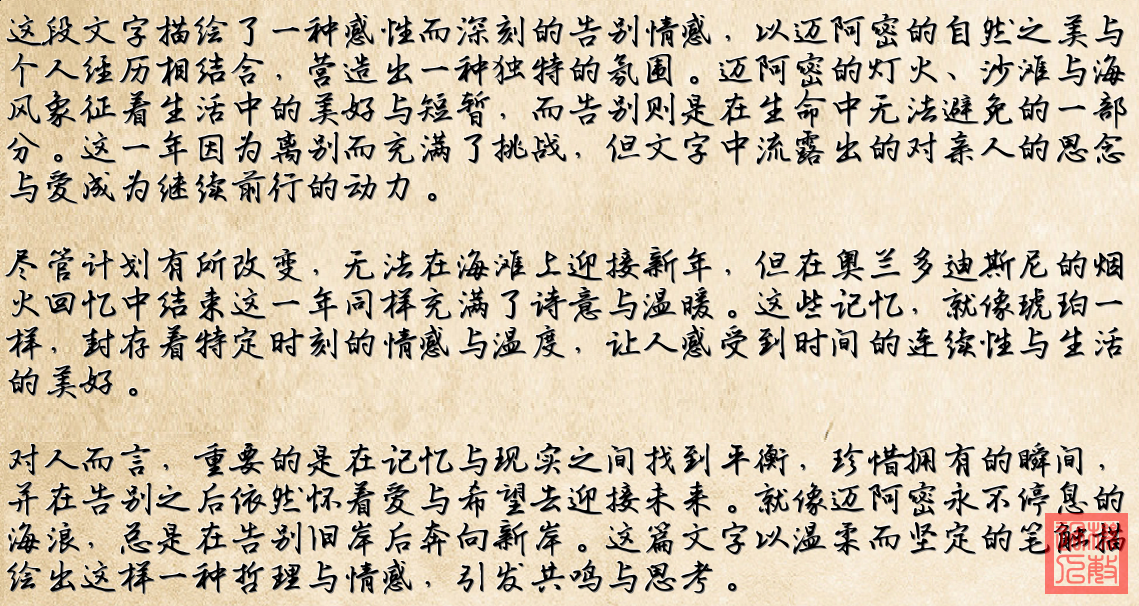 这段文字描绘了一种感性而深刻的告别情感，以迈阿密的自然之美与
个人经历相结合，营造出一种独特的氛围。迈阿密的灯火、沙滩与海
风象征着生活中的美好与短暂，而告别则是在生命中无法避免的一部
分。这一年因为离别而充满了挑战，但文字中流露出的对亲人的思念
与爱成为继续前行的动力。
尽管计划有所改变，无法在海滩上迎接新年，但在奥兰多迪斯尼的烟
火回忆中结束这一年同样充满了诗意与温暖。这些记忆，就像琥珀一
样，封存着特定时刻的情感与温度，让人感受到时间的连续性与生活
的美好。
对人而言，重要的是在记忆与现实之间找到平衡，珍惜拥有的瞬间，
并在告别之后依然怀着爱与希望去迎接未来。就像迈阿密永不停息的
海浪，总是在告别旧岸后奔向新岸。这篇文字以温柔而坚定的笔触描
绘出这样一种哲理与情感，引发共鸣与思考。